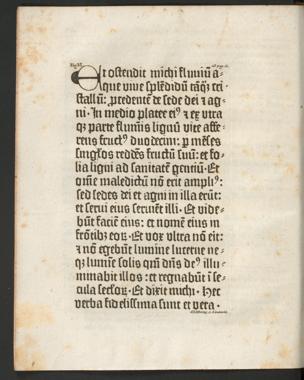 Et ostendit michi fluuiū a-
que viue splēdidū tāqȝ cri-
stallū: ꝓcedentē de sede dei ⁊ ag-
ni · In medio platee eiꝰ ⁊ ex vtra
qȝ parte flumīs lignū vite affe-
rens fructꝰ duodecim: ꝑ mēses
singlos reddēs fructū suū: et fo-
lia ligni ad sanitatē gentiū · Et
om̄e maledictū nō erit ampliꝰ:
sed sedes dei et agni in illa erūt:
et serui eius seruiēt illi · Et vide-
būt faciē eius: et nomē eius in
frōtibꝫ eoꝝ · Et vox vltra nō eit:
⁊ nō egebūt lumine lucerne ne-
qȝ lumīe solis qm̄ dn̄s deꝰ illu-
minabit illos: et regnabūt ī se-
cula seclor · Et dixit michi · Hec
verba fidelissima sunt et vera ·